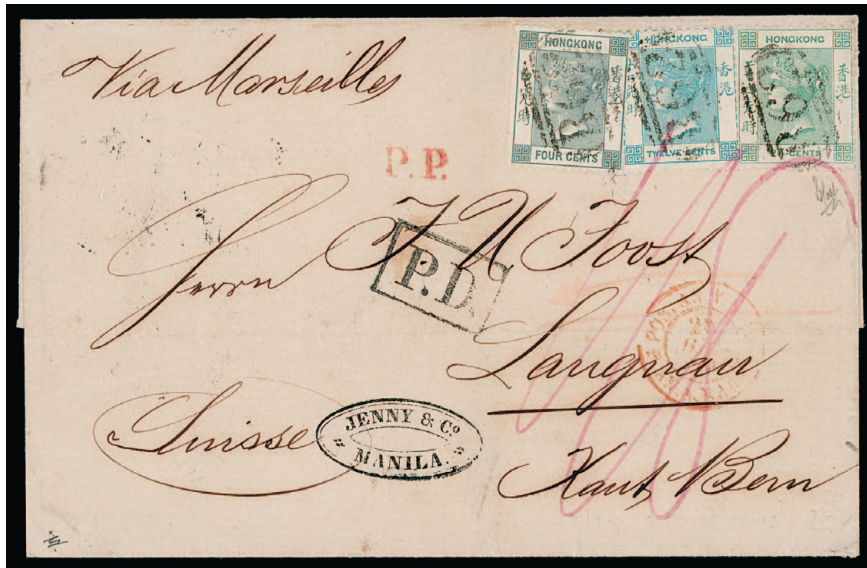 Via Marseilles
HONGKONG
香港
FOUR CENTS
B62
HONGKONG
香港
TWELVE CENTS
B62
HONGKONG
香港
CENTS
B62
P.P.
Herrn J. U. Joost
P.D.
Langnau
Suisse
JENNY & Co
MANILA.
Kant Bern